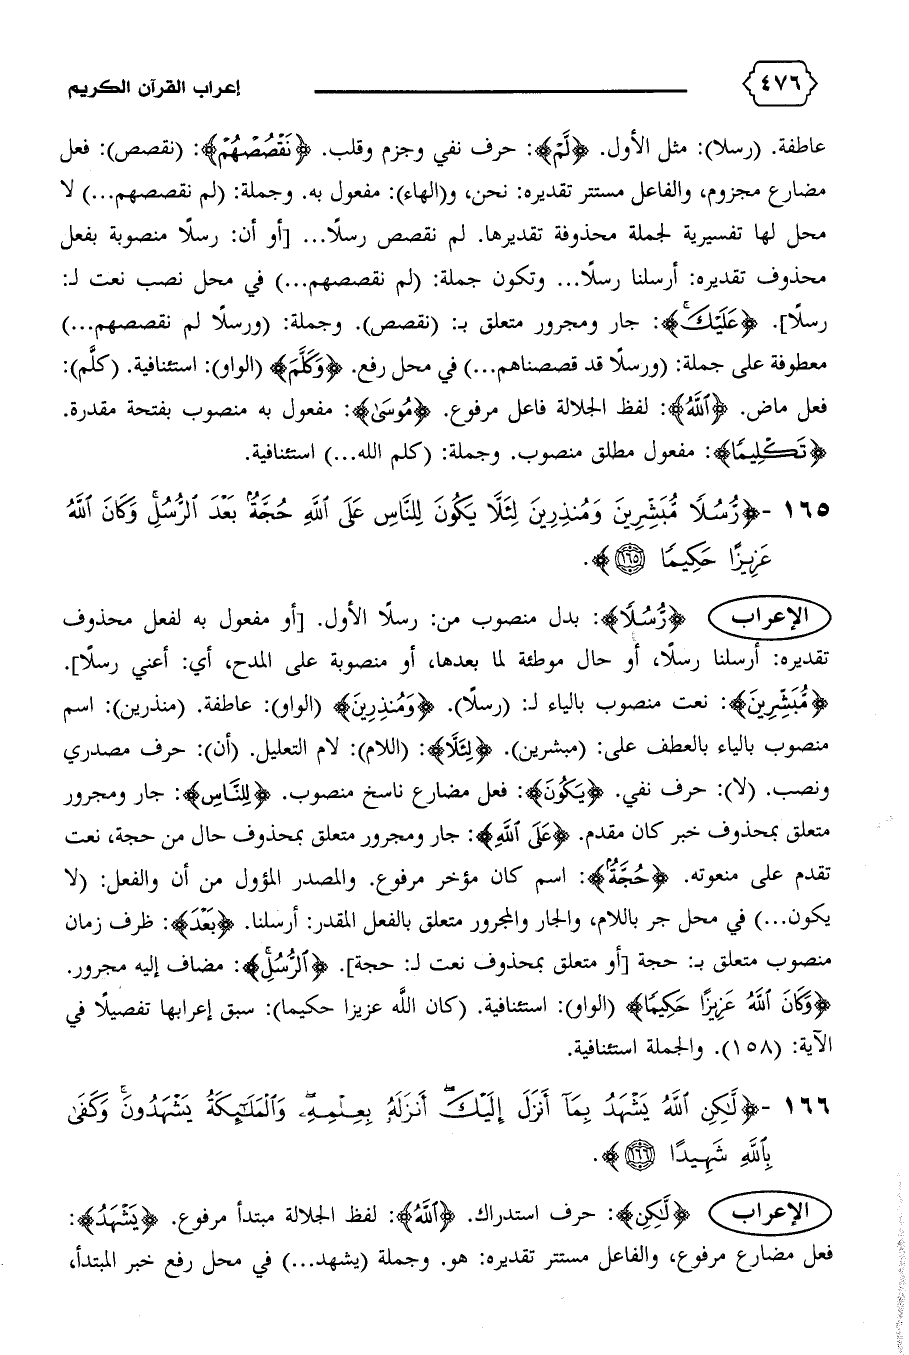 ٤٧٦ إعراب القرآن الكريم
عاطفة. (رسلا): مثل الأول. ﴿لَّمْ﴾: حرف نفي وجزم وقلب. ﴿نَقْصُصْهُمْ﴾: (نقصص): فعل
مضارع مجزوم، والفاعل مستتر تقديره: نحن، و(الهاء): مفعول به. وجملة: (لم نقصصهم...) لا
محل لها تفسيرية لجملة محذوفة تقديرها. لم نقصص رسلًا... [أو أن: رسلًا منصوبة بفعل
محذوف تقديره: أرسلنا رسلًا... وتكون جملة: (لم نقصصهم...) في محل نصب نعت لـ:
رسلًا]. ﴿عَلَيْكَ﴾: جار ومجرور متعلق بـ: (نقصص). وجملة: (ورسلًا لم نقصصهم...)
معطوفة على جملة: (ورسلًا قد قصصناهم...) في محل رفع. ﴿وَكَلَّمَ﴾ (الواو): استئنافية. (كلَّم):
فعل ماض. ﴿ٱللَّهُ﴾: لفظ الجلالة فاعل مرفوع. ﴿مُوسَىٰ﴾: مفعول به منصوب بفتحة مقدرة.
﴿تَكْلِيمًا﴾: مفعول مطلق منصوب. وجملة: (كلم الله...) استئنافية.
١٦٥ -﴿رُّسُلًا مُّبَشِّرِينَ وَمُنذِرِينَ لِئَلَّا يَكُونَ لِلنَّاسِ عَلَى ٱللَّهِ حُجَّةٌۢ بَعْدَ ٱلرُّسُلِۚ وَكَانَ ٱللَّهُ
عَزِيزًا حَكِيمًا ١٦٥﴾.
الإعراب ﴿رُّسُلًا﴾: بدل منصوب من: رسلًا الأول. [أو مفعول به لفعل محذوف
تقديره: أرسلنا رسلًا، أو حال موطئة لما بعدها، أو منصوبة على المدح، أي: أعني رسلًا].
﴿مُّبَشِّرِينَ﴾: نعت منصوب بالياء لـ: (رسلًا). ﴿وَمُنذِرِينَ﴾ (الواو): عاطفة. (منذرين): اسم
منصوب بالياء بالعطف على: (مبشرين). ﴿لِئَلَّا﴾: (اللام): لام التعليل. (أن): حرف مصدري
ونصب. (لا): حرف نفي. ﴿يَكُونَ﴾: فعل مضارع ناسخ منصوب. ﴿لِلنَّاسِ﴾: جار ومجرور
متعلق بمحذوف خبر كان مقدم. ﴿عَلَى ٱللَّهِ﴾: جار ومجرور متعلق بمحذوف حال من حجة، نعت
تقدم على منعوته. ﴿حُجَّةٌۢ﴾: اسم كان مؤخر مرفوع. والمصدر المؤول من أن والفعل: (لا
يكون...) في محل جر باللام، والجار والمجرور متعلق بالفعل المقدر: أرسلنا. ﴿بَعْدَ﴾: ظرف زمان
منصوب متعلق بـ: حجة [أو متعلق بمحذوف نعت لـ: حجة]. ﴿ٱلرُّسُلِۚ﴾: مضاف إليه مجرور.
﴿وَكَانَ ٱللَّهُ عَزِيزًا حَكِيمًا﴾ (الواو): استئنافية. (كان اللَّه عزيزا حكيما): سبق إعرابها تفصيلًا في
الآية: (١٥٨). والجملة استئنافية.
١٦٦ -﴿لَّٰكِنِ ٱللَّهُ يَشْهَدُ بِمَآ أَنزَلَ إِلَيْكَۖ أَنزَلَهُۥ بِعِلْمِهِۦۖ وَٱلْمَلَٰٓئِكَةُ يَشْهَدُونَۚ وَكَفَىٰ
بِٱللَّهِ شَهِيدًا ١٦٦﴾.
الإعراب ﴿لَّٰكِنِ﴾: حرف استدراك. ﴿ٱللَّهُ﴾: لفظ الجلالة مبتدأ مرفوع. ﴿يَشْهَدُ﴾:
فعل مضارع مرفوع، والفاعل مستتر تقديره: هو. وجملة (يشهد...) في محل رفع خبر المبتدأ،